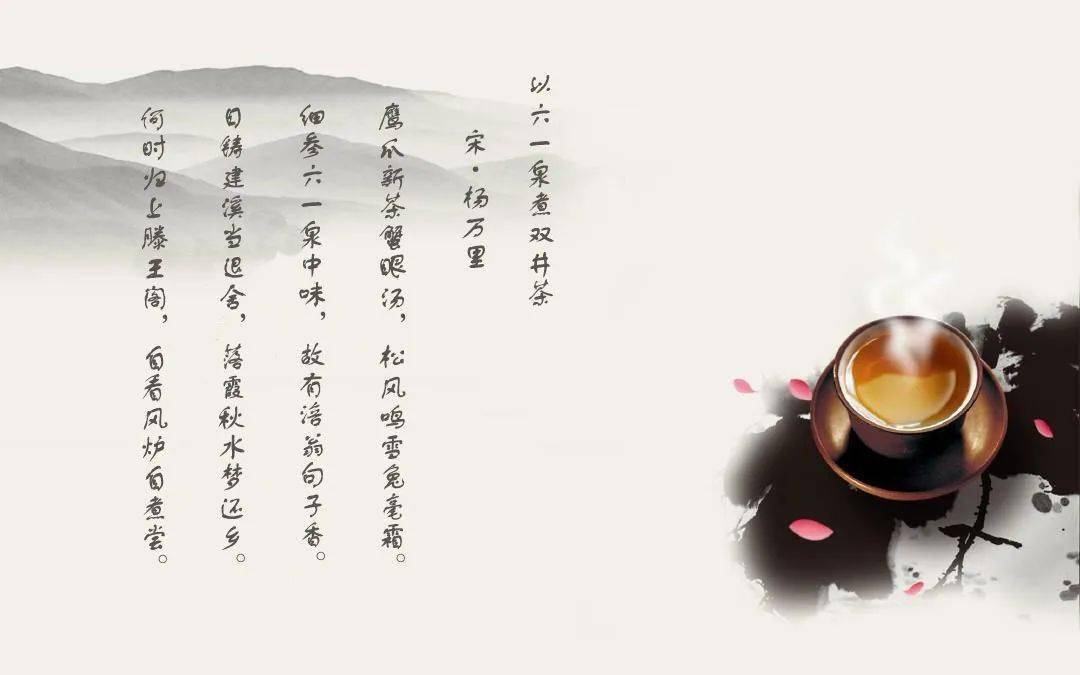 以六一泉煮双井茶
宋·杨万里
鹰爪新茶蟹眼汤，松风鸣雪兔毫霜。
细参六一泉中味，故有涪翁句子香。
日铸建溪当退舍，落霞秋水梦还乡。
何时归上滕王阁，自看风炉自煮尝。